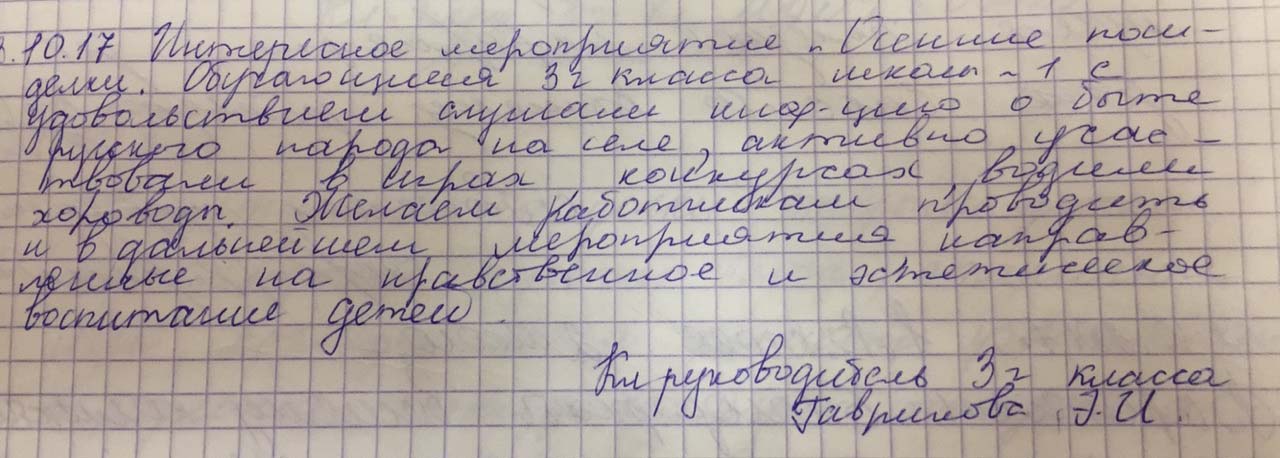 3.10.17 Интересное мероприятие „Осенние поси-
делки. Обучающиеся 3г класса школы ~1 с
удовольствием слушали инф-цию о быте
русского народа на селе, активно учас-
твовали в играх конкурсах водили
хороводы. Желаем работникам проводить
и в дальнейшем мероприятия направ-
ленные на нравственное и эстетическое
воспитание детей.
Кл руководитель 3г класса
Гаврилова Э.И.